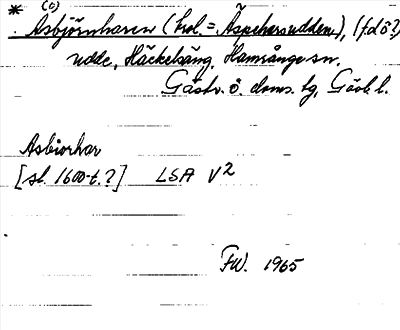 * (c)
Asbjörnharen (trol. = Äspeharsudden), (f.d ö?)
udde, Häckelsäng, Hamrånge sn.
Gästr. ö. doms. lg, Gävl. l.
Asbiorhar
[sl. 1600-t.?] LSA V2
FW. 1965